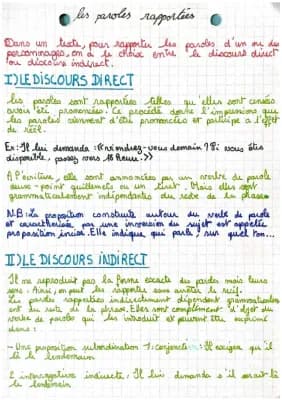 les paroles rapportées
Dans un texte, pour rapporter les paroles d'un ou des
personnages, on a le choix entre le discours direct
ou discours indirect.
I) LE DISCOURS DIRECT
Les paroles sont rapportées telles qu'elles sont censés
avoir été prononcées. Ce procédé donne l'impression que
les paroles viennent d'être prononcées et participe a l'effet
de réel.
Ex: Il lui demanda : « viendrez-vous demain ? Si vous êtes
disponible, passez vers 16 heure. »
A l'écriture, elle sont annoncées par un verbe de parole
deux-point guillemets ou un tiret. Mais elles sont
grammaticalement indépendantes du reste de la phrase
N.B: La proposition constituée autour du verbe de parole
et caractérisée par une inversion du sujet est appelée
proposition incise. Elle indique qui parle, sur quel ton...
II) LE DISCOURS INDIRECT
Il ne reproduit pas la forme exacte des paroles mais leurs
sens. Ainsi, on peut les rapportés sans arrêter le récit.
Les paroles rapportées indirectement dépendent grammaticalement
du reste de la phrase. Elles sont complément d'objet du
verbe de parole qui les introduit et peuvent être exprimé
dans :
- Une proposition subordination : Il exigea qu'il
là le lendemain
L'interrogative indirecte : Il lui demanda s'il serait là
le lendemain